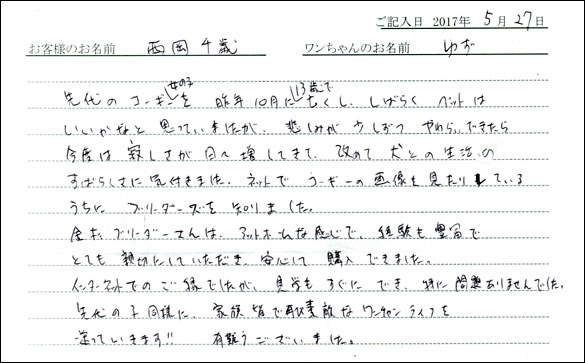 ご記入日 2017年 5月 27日
お客様のお名前 西岡 千歳 ワンちゃんのお名前 ゆず
先代のコーギー(女の子)を 昨年10月に(13歳で)亡くし、しばらく ペットは
いいかなと 思っていましたが、悲しみが 少しずつ やわらいできたら
今度は 寂しさが 日々 増してきて、改めて 犬との生活の
すばらしさに 気付きました。ネットで コーギーの画像を見たりしている
うちに ブリーダーズを知りました。
ブリーダーさんは、アットホームな感じで、経験も豊富で
とても 親切にしていただき、安心して 購入 できました。
インターネットでのご縁でしたが、見学もすぐにでき、特に問題ありませんでした。
先代の子同様に、家族皆で 素敵な ワンチャンライフを
送っていきます!! 有難うございました。